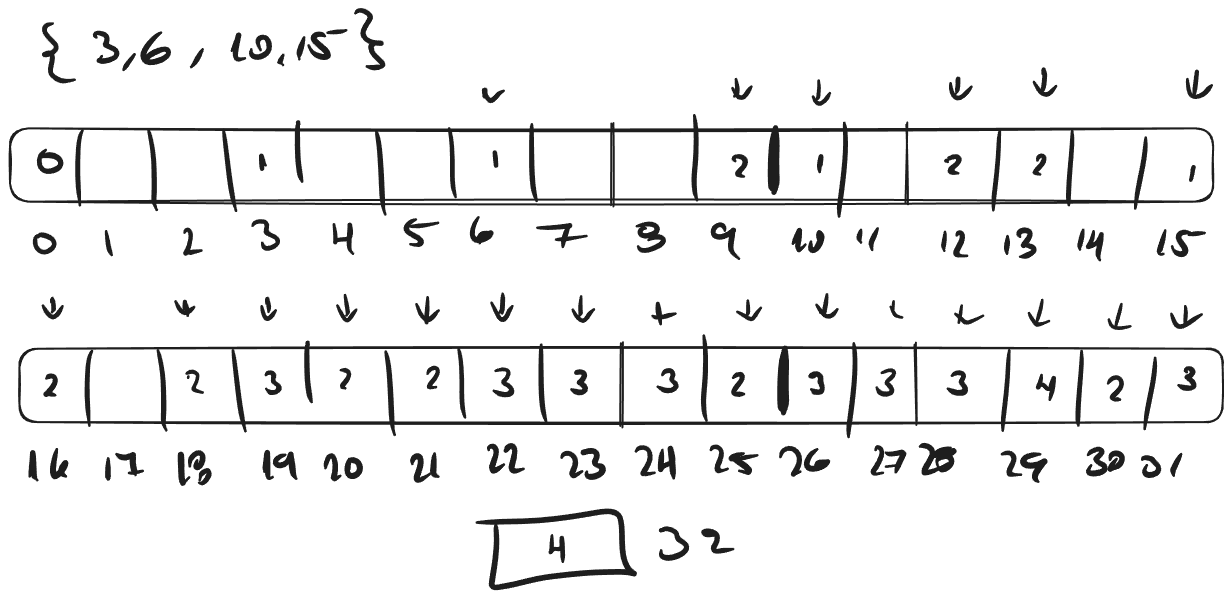 { 3,6 , 10,15 }
0 1 1 2 1 2 2 1
0 1 2 3 4 5 6 7 8 9 10 11 12 13 14 15
2 2 3 2 2 3 3 3 2 3 3 3 4 2 3
16 17 18 19 20 21 22 23 24 25 26 27 28 29 30 31
4 32